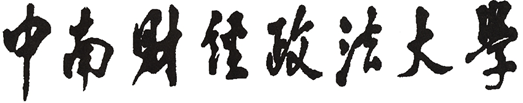 中南财经政法大學